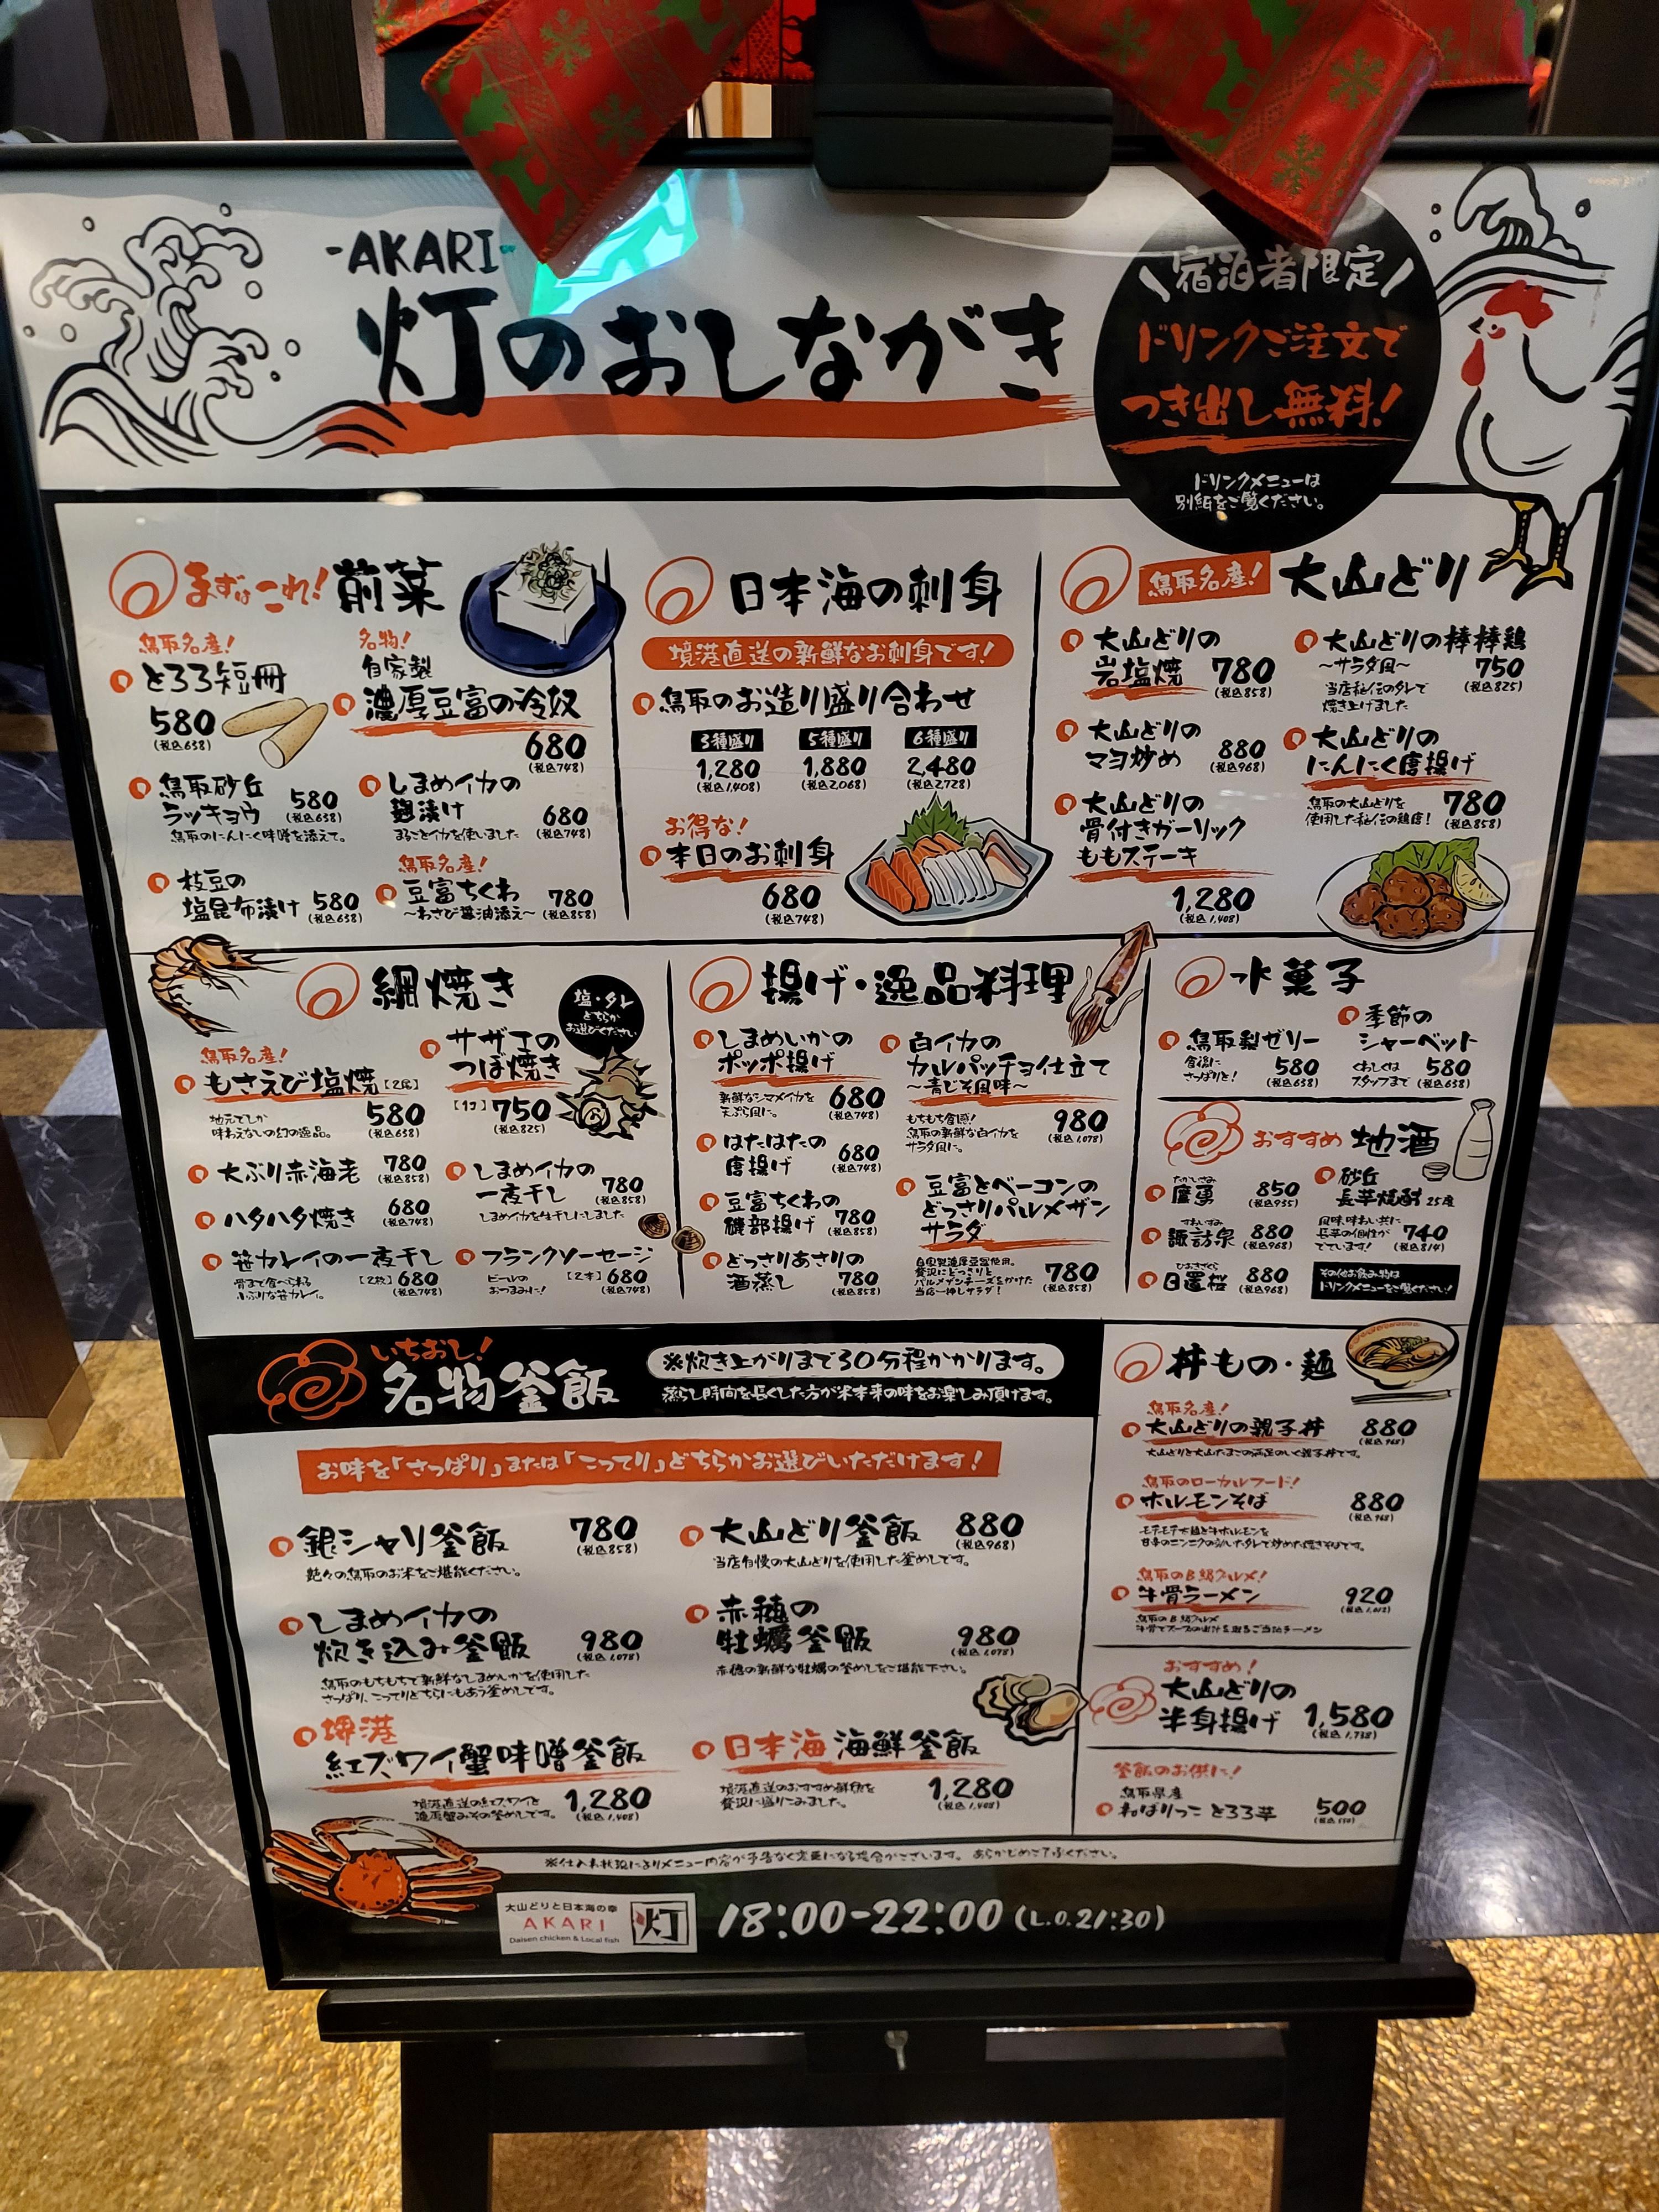 -AKARI-
灯のおしながき
宿泊者限定
ドリンクご注文で
つき出し無料!
ドリンクメニューは
別紙をご覧ください。
まずはこれ! 前菜
鳥取名産!
とろろ短冊
580
(税込638)
名物!
自家製
濃厚豆富の冷奴
680
(税込748)
鳥取砂丘
ラッキョウ
580
(税込638)
鳥取のにんにく味噌を添えて。
しまめイカの
麹漬け
680
(税込748)
まるごとイカを使いました
枝豆の
塩昆布漬け
580
(税込638)
鳥取名産!
豆富ちくわ
~わさび醤油添え~
780
(税込858)
日本海の刺身
境港直送の新鮮なお刺身です!
鳥取のお造り盛り合わせ
3種盛り 5種盛り 6種盛り
1,280 1,880 2,480
(税込1,408) (税込2,068) (税込2,728)
お得な!
本日のお刺身
680
(税込748)
鳥取名産! 大山どり
大山どりの
岩塩焼
780
(税込858)
大山どりの棒棒鶏
~サラダ風~
750
(税込825)
当店秘伝のタレで
焼き上げました
大山どりの
マヨ炒め
880
(税込968)
大山どりの
にんにく唐揚げ
鳥取の大山どりを
使用した秘伝の鶏唐!
780
(税込858)
大山どりの
骨付きガーリック
ももステーキ
1,280
(税込1,408)
網焼き
塩・タレ
どちらか
お選びください
鳥取名産!
もさえび塩焼【2尾】
地元でしか
味わえなしの幻の逸品。
580
(税込638)
サザエの
つぼ焼き
【1ケ】750
(税込825)
大ぶり赤海老
780
(税込858)
しまめイカの
一夜干し
780
(税込858)
しまめイカを生干しにしました
ハタハタ焼き
680
(税込748)
笹カレイの一夜干し
骨まで食べられる
小ぶりな笹カレイ。
【2枚】680
(税込748)
フランクソーセージ
ビールの
おつまみに!
【2本】680
(税込748)
揚げ・逸品料理
しまめいかの
ポッポ揚げ
新鮮なシマメイカを
天ぷら風に。
680
(税込748)
白イカの
カルパッチョ仕立て
~青じそ風味~
もちもち食感!
鳥取の新鮮な白イカを
サラダ風に。
980
(税込1,078)
はたはたの
唐揚げ
680
(税込748)
豆富ちくわの
磯部揚げ
780
(税込858)
豆富とベーコンの
どっさりパルメザン
サラダ
自家製濃厚豆富使用。
贅沢にどっさりと
パルメザンチーズをかけた
当店一押しサラダ!
780
(税込858)
どっさりあさりの
酒蒸し
780
(税込858)
水菓子
鳥取梨ゼリー
食後に
さっぱりと!
580
(税込638)
季節の
シャーベット
くわしくは
スタッフまで
580
(税込638)
おすすめ 地酒
たかいさみ
鷹勇
850
(税込935)
すわいずみ
諏訪泉
880
(税込968)
ひおきざくら
日置桜
880
(税込968)
砂丘
長芋焼酎 25度
風味、味わい共に
長芋の個性が
でています!
740
(税込814)
その他お飲み物は
ドリンクメニューをご覧ください!
いちおし!
名物釜飯
※炊き上がりまで30分程かかります。
蒸らし時間を長くした方が米本来の味をお楽しみ頂けます。
お味を「さっぱり」または「こってり」どちらかお選びいただけます!
銀シャリ釜飯
780
(税込858)
艶々の鳥取のお米をご堪能ください。
大山どり釜飯
880
(税込968)
当店自慢の大山どりを使用した釜めしです。
しまめイカの
炊き込み釜飯
980
(税込1,078)
鳥取のもちもちで新鮮なしまめいかを使用した
さっぱり、こってりどちらにもあう釜めしです。
赤穂の
牡蠣釜飯
980
(税込1,078)
赤穂の新鮮な牡蠣の釜めしをご堪能下さい。
境港
紅ズワイ蟹味噌釜飯
境港直送の紅ズワイと
濃厚蟹みその釜めしです。
1,280
(税込1,408)
日本海 海鮮釜飯
境港直送のおすすめ鮮魚を
贅沢に盛りこみました。
1,280
(税込1,408)
丼もの・麺
鳥取名産!
大山どりの親子丼
880
(税込968)
大山どりと大山たまごの満足のいく親子丼です。
鳥取のローカルフード!
ホルモンそば
880
(税込968)
モチモチ太麺と牛ホルモンを
甘辛のニンニクの効いたタレで炒めた焼きそばです。
鳥取のB級グルメ!
牛骨ラーメン
920
(税込1,012)
鳥取のB級グルメ
おすすめ!
大山どりの
半身揚げ
1,580
(税込1,738)
釜飯のお供に!
鳥取県産
ねばりっこ とろろ芋
500
(税込550)
※仕入れ状況によりメニュー内容が予告なく変更になる場合がございます。あらかじめご了承ください。
大山どりと日本海の幸
AKARI
Daisen chicken & Local fish
灯
18:00-22:00 (L.O.21:30)